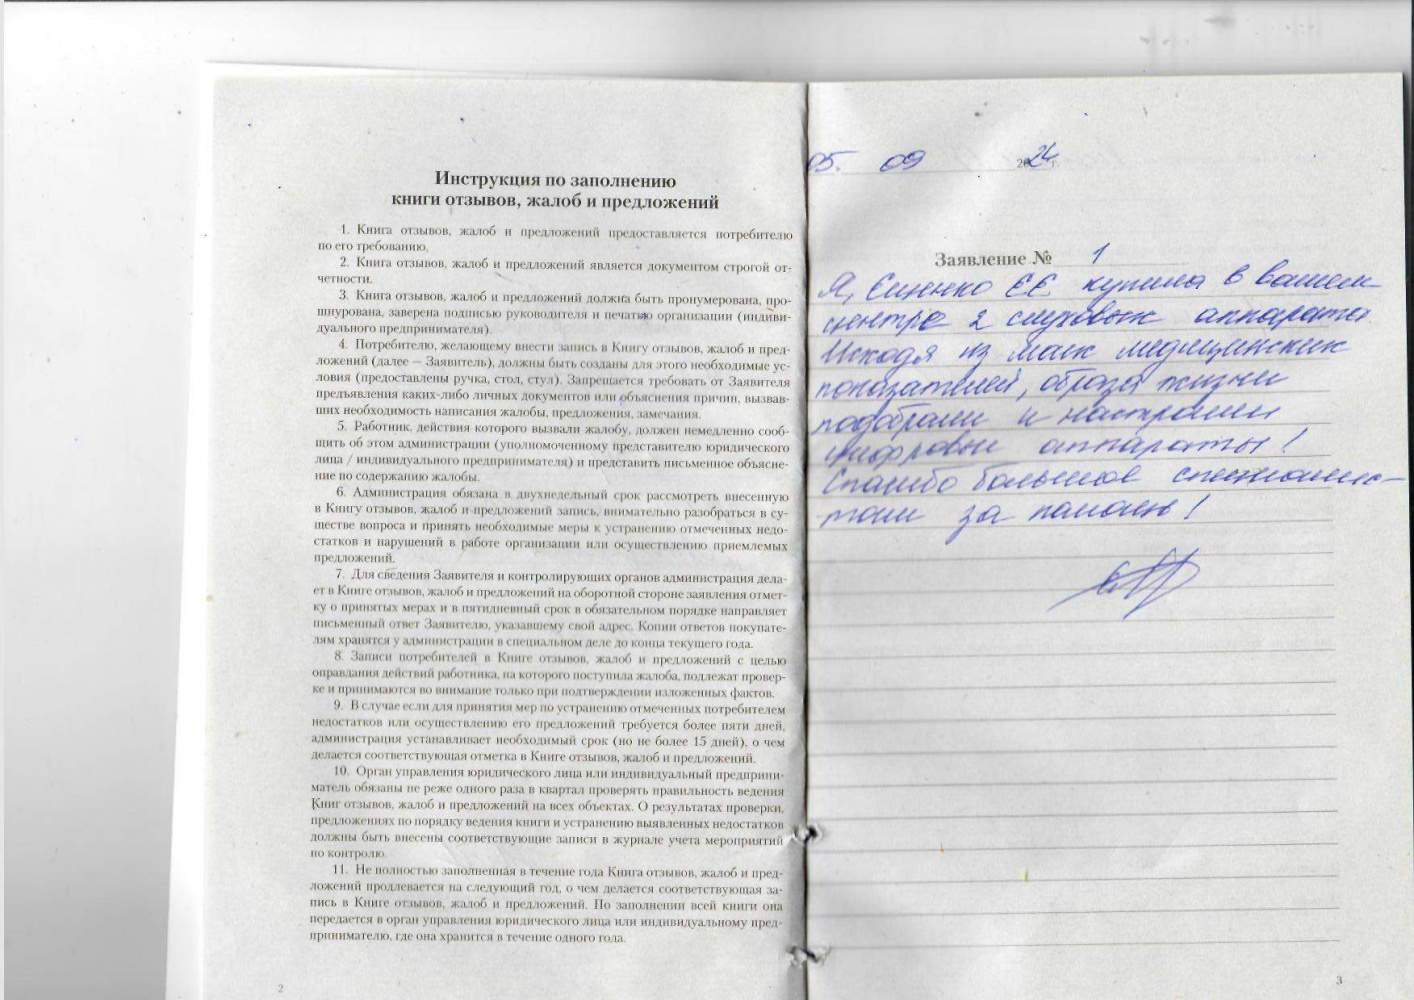 Инструкция по заполнению
книги отзывов, жалоб и предложений
1. Книга отзывов, жалоб и предложений предоставляется потребителю
по его требованию.
2. Книга отзывов, жалоб и предложений является документом строгой от-
четности.
3. Книга отзывов, жалоб и предложений должна быть пронумерована, про-
шнурована, заверена подписью руководителя и печатью организации (индиви-
дуального предпринимателя).
4. Потребителю, желающему внести запись в Книгу отзывов, жалоб и пред-
ложений (далее — Заявитель), должны быть созданы для этого необходимые ус-
ловия (предоставлены ручка, стол, стул). Запрещается требовать от Заявителя
предъявления каких-либо личных документов или объяснения причин, вызвав-
ших необходимость написания жалобы, предложения, замечания.
5. Работник, действия которого вызвали жалобу, должен немедленно сооб-
щить об этом администрации (уполномоченному представителю юридического
лица / индивидуального предпринимателя) и представить письменное объясне-
ние по содержанию жалобы.
6. Администрация обязана в двухнедельный срок рассмотреть внесенную
в Книгу отзывов, жалоб и предложений запись, внимательно разобраться в су-
ществе вопроса и принять необходимые меры к устранению отмеченных недо-
статков и нарушений в работе организации или осуществлению приемлемых
предложений.
7. Для сведения Заявителя и контролирующих органов администрация дела-
ет в Книге отзывов, жалоб и предложений на оборотной стороне заявления отмет-
ку о принятых мерах и в пятидневный срок в обязательном порядке направляет
письменный ответ Заявителю, указавшему свой адрес. Копии ответов покупате-
лям хранятся у администрации в специальном деле до конца текущего года.
8. Записи потребителей в Книге отзывов, жалоб и предложений с целью
оправдания действий работника, на которого поступила жалоба, подлежат провер-
ке и принимаются во внимание только при подтверждении изложенных фактов.
9. В случае если для принятия мер по устранению отмеченных потребителем
недостатков или осуществлению его предложений требуется более пяти дней,
администрация устанавливает необходимый срок (но не более 15 дней), о чем
делается соответствующая отметка в Книге отзывов, жалоб и предложений.
10. Орган управления юридического лица или индивидуальный предприни-
матель обязаны не реже одного раза в квартал проверять правильность ведения
Книг отзывов, жалоб и предложений на всех объектах. О результатах проверки,
предложениях по порядку ведения книги и устранению выявленных недостатков
должны быть внесены соответствующие записи в журнале учета мероприятий
по контролю.
11. Не полностью заполненная в течение года Книга отзывов, жалоб и пред-
ложений продлевается на следующий год, о чем делается соответствующая за-
пись в Книге отзывов, жалоб и предложений. По заполнении всей книги она
передается в орган управления юридического лица или индивидуальному пред-
принимателю, где она хранится в течение одного года.
2
05. 09 2024 г.
Заявление № 1
Я, Еценко Е.Е. купила в вашем
центре 2 слуховых аппарата
Исходя из моих медицинских
показателей, образа жизни
подобрали и настроили
цифровые аппараты!
Спасибо большое специалис-
там за помощь!
3